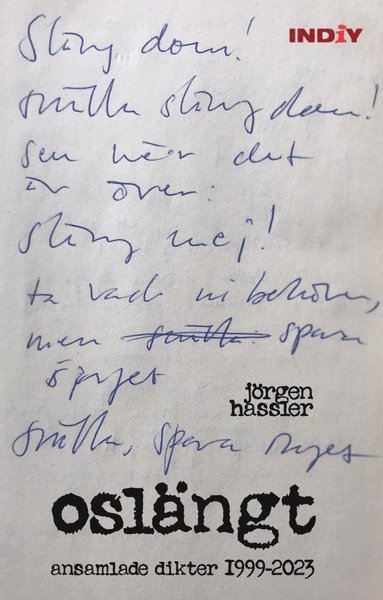 INDiY
Släng dom!
snälla släng dom!
sen när det
är över:
släng mej!
ta vad ni behöver,
men snälla spara
jörgen
hassler
snälla, spara
oslängt
ansamlade dikter 1999-2023